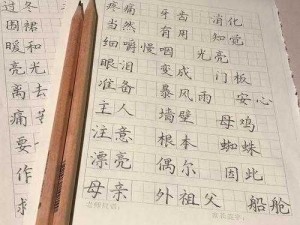 过冬
围裙
暖和
亮光
离去
痛苦
要
作
求
疼痛 牙齿 消化
当然 有用 知觉
细嚼慢咽 光亮
眼泪 变成 门板
准备 暴风雨 安心
主人 墙壁 母鸡
注意 根本 蜘蛛
漂亮 偶尔 因此
母亲 外祖父 船舱